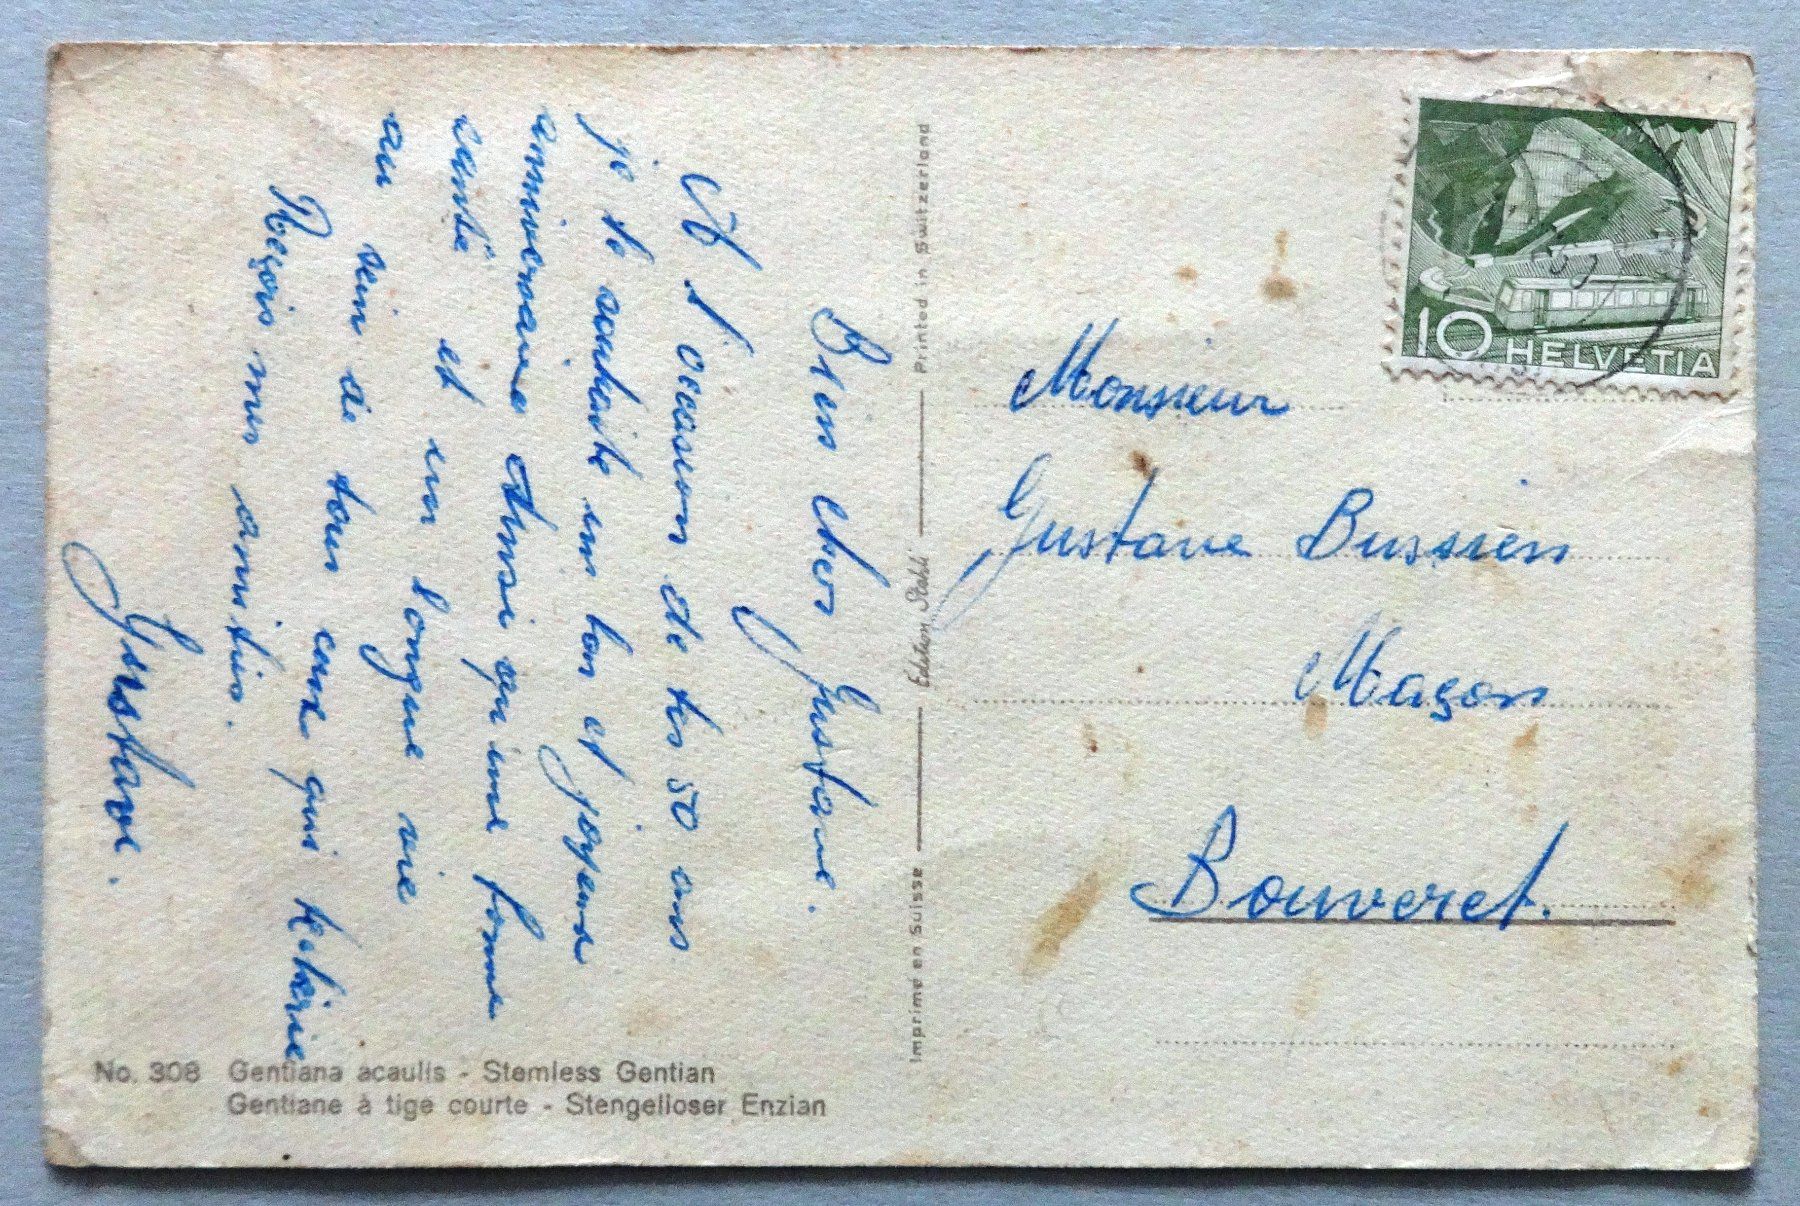 Bien cher Gustave.
A l'occasion de tes 50 ans
je te souhaite un bon et joyeux
anniversaire Ainsi qu'une bonne
santé et une longue vie
au sein de tous ceux qui t'
Reçois mes amitiés.
Gustave.
Monsieur
Gustave Bussien
Maçon
Bouveret.
10 HELVETIA
Imprimé en Suisse
Edition Stehli
Printed in Switzerland
No. 308 Gentiana acaulis - Stemless Gentian
Gentiane à tige courte - Stengelloser Enzian